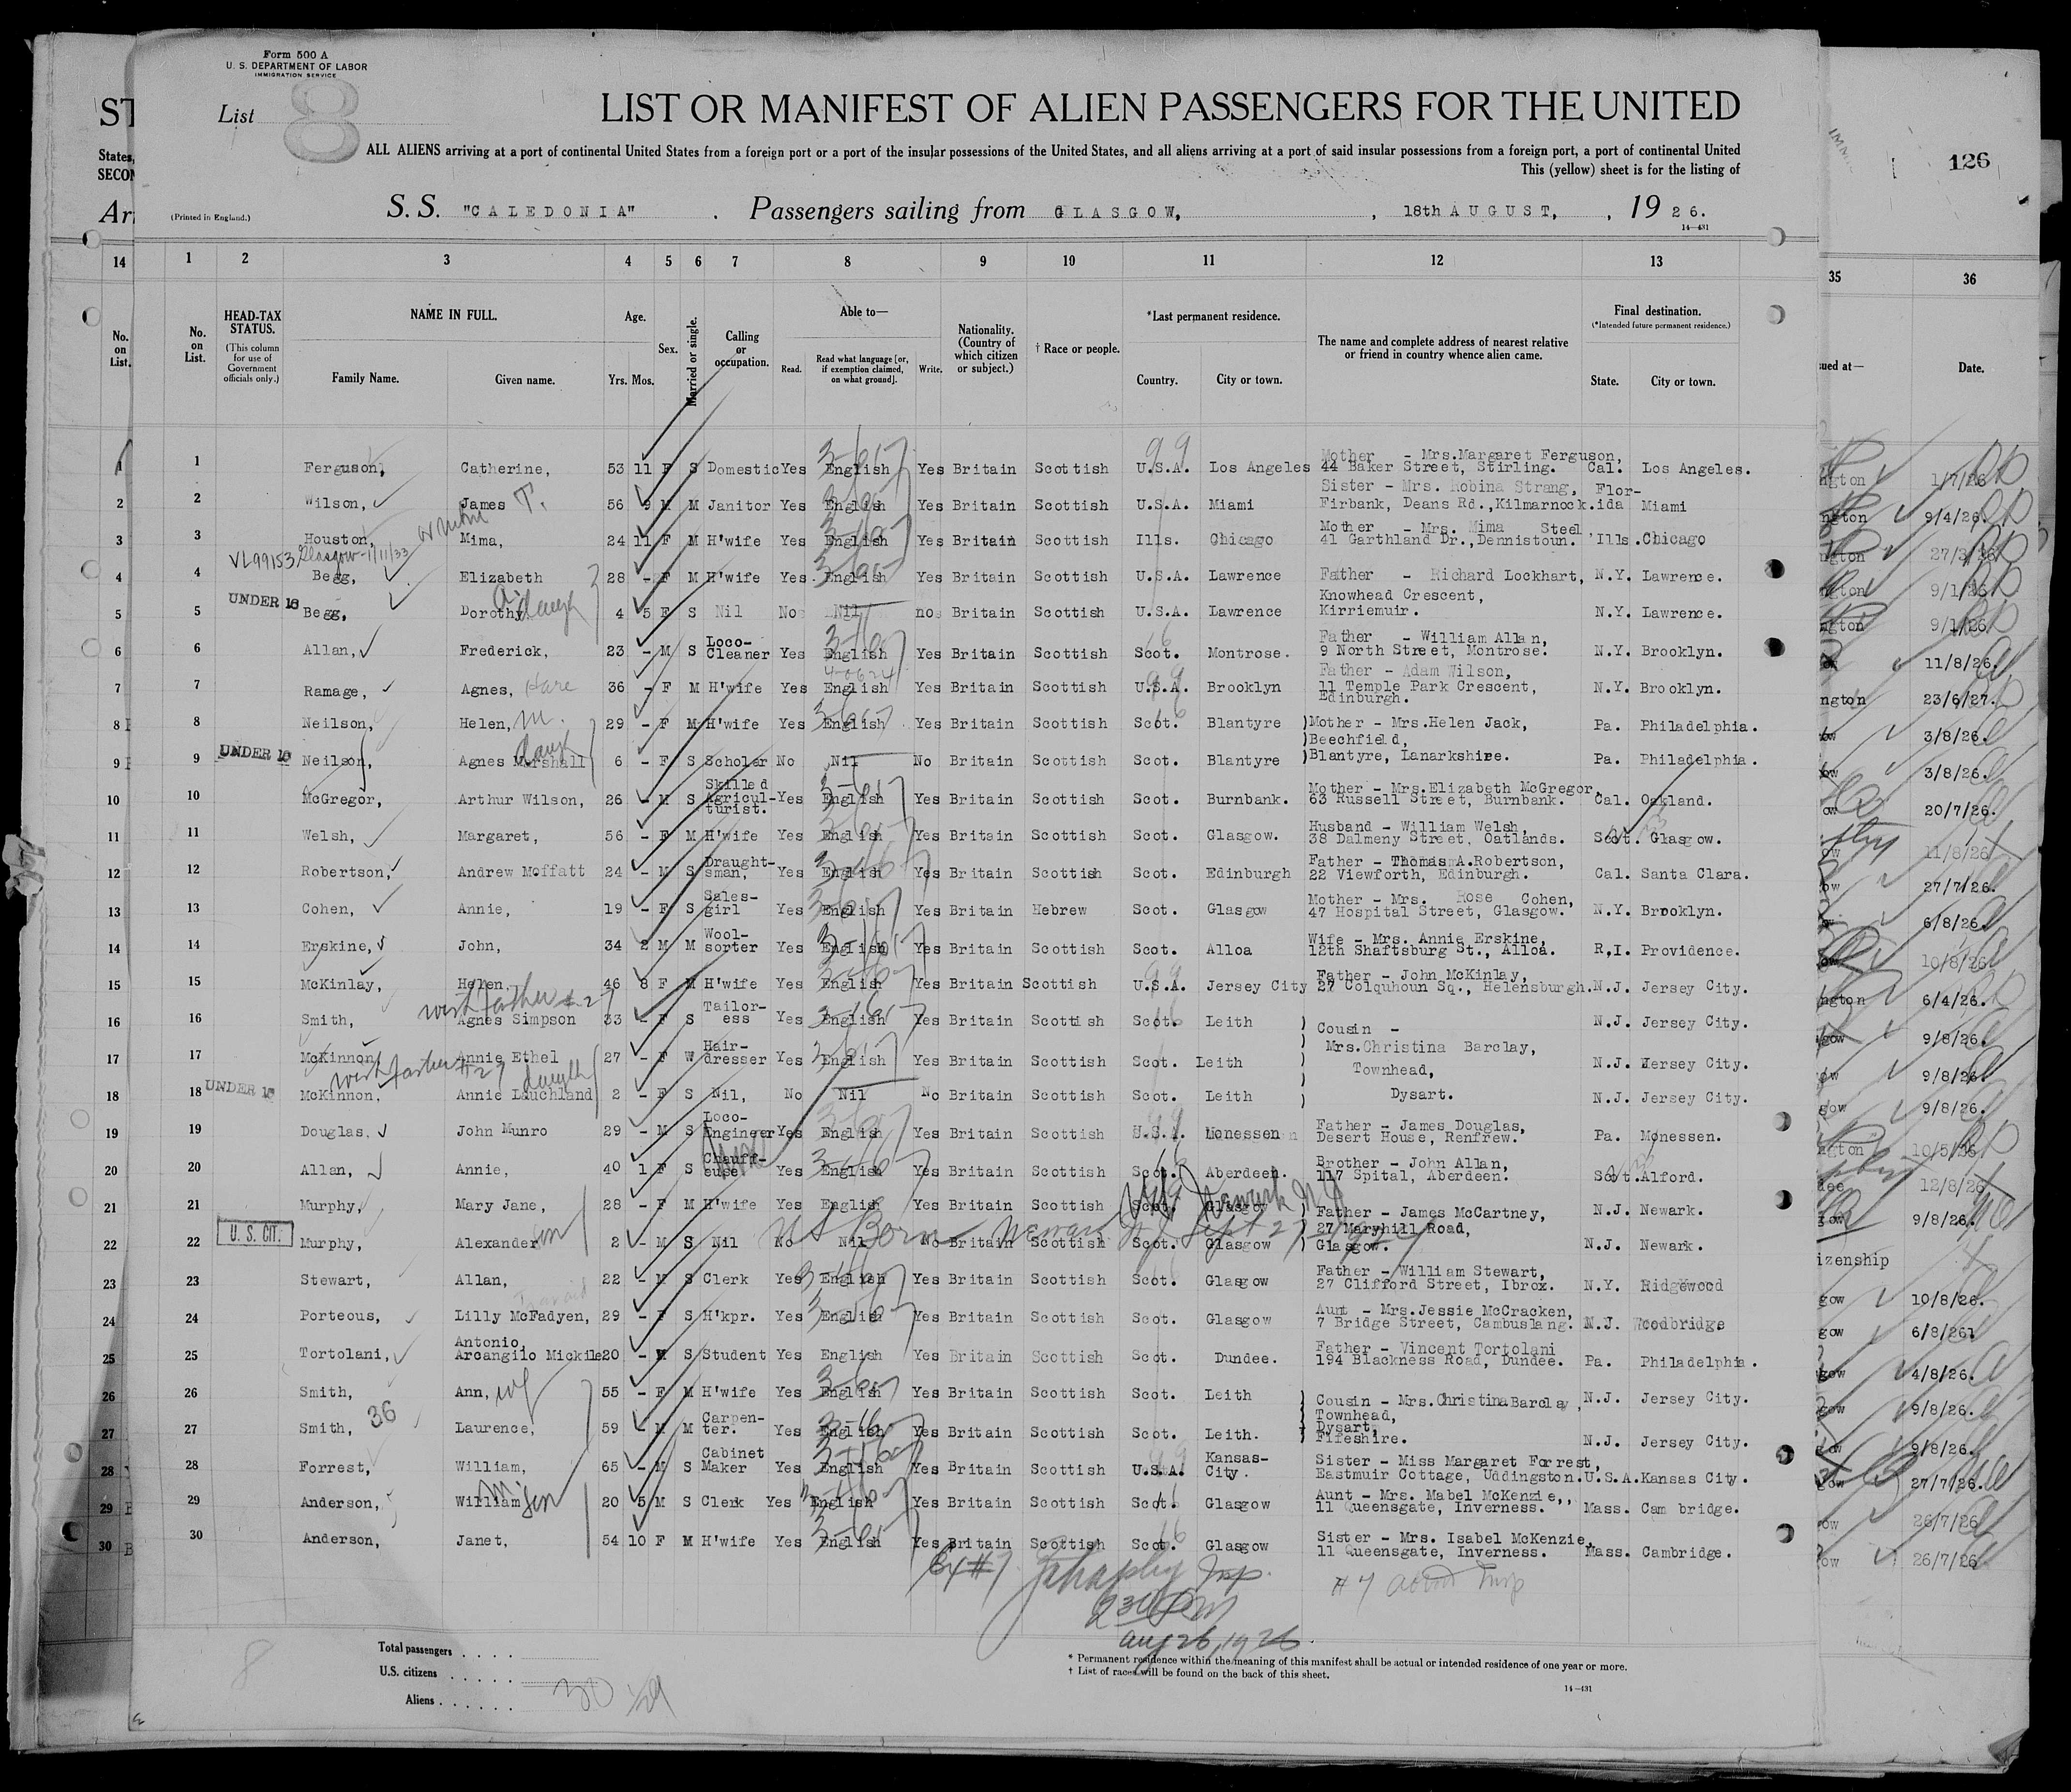 Form 500 A
U. S. DEPARTMENT OF LABOR
IMMIGRATION SERVICE
List 8
LIST OR MANIFEST OF ALIEN PASSENGERS FOR THE UNITED
ALL ALIENS arriving at a port of continental United States from a foreign port or a port of the insular possessions of the United States, and all aliens arriving at a port of said insular possessions from a foreign port, a port of continental United
This (yellow) sheet is for the listing of
(Printed in England.)
S. S. "CALEDONIA" . Passengers sailing from GLASGOW, , 18th AUGUST, , 19 26.
14—431
126
14 1 2 3 4 5 6 7 8 9 10 11 12 13 35 36
No. on List. No. on List. HEAD-TAX STATUS. (This column for use of Government officials only.) NAME IN FULL. Family Name. Given name. Age. Yrs. Mos. Sex. Married or single. Calling or occupation. Able to— Read. Read what language [or, if exemption claimed, on what ground]. Write. Nationality. (Country of which citizen or subject.) † Race or people. *Last permanent residence. Country. City or town. The name and complete address of nearest relative or friend in country whence alien came. Final destination. (*Intended future permanent residence.) State. City or town. Date.
1 1 Ferguson, Catherine, 53 11 F S Domestic Yes English Yes Britain Scottish U.S.A. Los Angeles Mother - Mrs.Margaret Ferguson, 44 Baker Street, Stirling. Cal. Los Angeles. 1/7/26
2 2 Wilson, James T. 56 9 M M Janitor Yes English Yes Britain Scottish U.S.A. Miami Sister - Mrs. Robina Strang, Firbank, Deans Rd.,Kilmarnock. Flor-ida Miami 9/4/26.
3 3 Houston, Mima, 24 11 F M H'wife Yes English Yes Britain Scottish Ills. Chicago Mother - Mrs. Mima Steel 41 Garthland Dr.,Dennistoun. Ills. Chicago
VL99153 Glasgow-1/11/33
4 4 Begg, Elizabeth 28 - F M H'wife Yes English Yes Britain Scottish U.S.A. Lawrence Father - Richard Lockhart, N.Y. Lawrence. 9/1/26
Knowhead Crescent,
5 5 UNDER 16 Begg, Dorothy daugh 4 5 F S Nil No Nil no Britain Scottish U.S.A. Lawrence Kirriemuir. N.Y. Lawrence. 9/1/26
6 6 Allan, Frederick, 23 - M S Loco-Cleaner Yes English Yes Britain Scottish Scot. Montrose. Father - William Allan, 9 North Street, Montrose. N.Y. Brooklyn. 11/8/26.
7 7 Ramage, Agnes, Hare 36 - F M H'wife Yes English Yes Britain Scottish U.S.A. Brooklyn Father - Adam Wilson, 11 Temple Park Crescent, Edinburgh. N.Y. Brooklyn. 23/6/27.
8 8 Neilson, Helen, M. 29 - F M H'wife Yes English Yes Britain Scottish Scot. Blantyre )Mother - Mrs.Helen Jack, Pa. Philadelphia. 3/8/26.
)Beechfield,
9 9 UNDER 16 Neilson, Agnes Marshall daugh 6 - F S Scholar No Nil No Britain Scottish Scot. Blantyre )Blantyre, Lanarkshire. Pa. Philadelphia. 3/8/26.
10 10 McGregor, Arthur Wilson, 26 - M S Skilled Agricul-turist. Yes English Yes Britain Scottish Scot. Burnbank. Mother - Mrs.Elizabeth McGregor, 63 Russell Street, Burnbank. Cal. Oakland. 20/7/26.
11 11 Welsh, Margaret, 56 - F M H'wife Yes English Yes Britain Scottish Scot. Glasgow. Husband - William Welsh, 38 Dalmeny Street, Oatlands. Scot. Glasgow. 11/8/26
12 12 Robertson, Andrew Moffatt 24 - M S Draught-sman, Yes English Yes Britain Scottish Scot. Edinburgh Father - Thomas A.Robertson, 22 Viewforth, Edinburgh. Cal. Santa Clara. 27/7/26.
13 13 Cohen, Annie, 19 - F S Sales-girl Yes English Yes Britain Hebrew Scot. Glasgow Mother - Mrs. Rose Cohen, 47 Hospital Street, Glasgow. N.Y. Brooklyn. 6/8/26.
14 14 Erskine, John, 34 2 M M Wool-sorter Yes English Yes Britain Scottish Scot. Alloa Wife - Mrs. Annie Erskine, 12th Shaftsburg St., Alloa. R,I. Providence. 10/8/26
15 15 McKinlay, Helen, 46 8 F M H'wife Yes English Yes Britain Scottish U.S.A. Jersey City Father - John McKinlay, 27 Colquhoun Sq., Helensburgh. N.J. Jersey City. 6/4/26.
with father # 27
16 16 Smith, Agnes Simpson 33 - F S Tailor-ess Yes English Yes Britain Scottish Scot. Leith ) Cousin - N.J. Jersey City. 9/8/26.
17 17 McKinnon Annie Ethel 27 - F W Hair-dresser Yes English Yes Britain Scottish Scot. Leith Mrs.Christina Barclay, Townhead, N.J. Jersey City. 9/8/26.
with father # 27 daugh
18 18 UNDER 16 McKinnon, Annie Lauchland 2 - F S Nil, No Nil No Britain Scottish Scot. Leith ) Dysart. N.J. Jersey City. 9/8/26.
19 19 Douglas, John Munro 29 - M S Loco-Engineer Yes English Yes Britain Scottish U.S.A. Monessen Father - James Douglas, Desert House, Renfrew. Pa. Monessen. 10/5/26
20 20 Allan, Annie, 40 1 F S Chauff-euse Yes English Yes Britain Scottish Scot. Aberdeen. Brother - John Allan, 117 Spital, Aberdeen. Scot. Alford. 12/8/26
21 21 Murphy, Mary Jane, 28 - F M H'wife Yes English Yes Britain Scottish Scot. Glasgow Newark NJ Father - James McCartney, N.J. Newark. 9/8/26.
27 Maryhill Road,
22 22 U. S. CIT. Murphy, Alexander son 2 - M S Nil No Nil No Britain Scottish Scot. Glasgow Glasgow. N.J. Newark. izenship
US Born Newark N.J. Sept 27, 1924
23 23 Stewart, Allan, 22 - M S Clerk Yes English Yes Britain Scottish Scot. Glasgow Father - William Stewart, 27 Clifford Street, Ibrox. N.Y. Ridgewood 10/8/26.
24 24 Porteous, Lilly McFadyen, 29 - F S H'kpr. Yes English Yes Britain Scottish Scot. Glasgow Aunt - Mrs.Jessie McCracken, 7 Bridge Street, Cambuslang. N.J. Woodbridge 6/8/26
25 25 Tortolani, Antonio, Arcangilo Mickile 20 - M S Student Yes English Yes Britain Scottish Scot. Dundee. Father - Vincent Tortolani 194 Blackness Road, Dundee. Pa. Philadelphia. 4/8/26.
26 26 Smith, Ann, wf 55 - F M H'wife Yes English Yes Britain Scottish Scot. Leith ) Cousin - Mrs.Christina Barclay, N.J. Jersey City. 9/8/26.
Townhead,
27 27 Smith, 36 Laurence, 59 - M M Carpen-ter. Yes English Yes Britain Scottish Scot. Leith. ) Dysart, Fifeshire. N.J. Jersey City. 9/8/26.
28 28 Forrest, William, 65 - M S Cabinet Maker Yes English Yes Britain Scottish U.S.A. Kansas-City. Sister - Miss Margaret Forrest, Eastmuir Cottage, Uddingston. U.S.A. Kansas City. 27/7/26.
29 29 Anderson, William son 20 5 M S Clerk Yes English Yes Britain Scottish Scot. Glasgow Aunt - Mrs. Mabel McKenzie,, 11 Queensgate, Inverness. Mass. Cam bridge. 26/7/26
30 30 Anderson, Janet, 54 10 F M H'wife Yes English Yes Britain Scottish Scot. Glasgow Sister - Mrs. Isabel McKenzie, 11 Queensgate, Inverness. Mass. Cambridge. 26/7/26
Insp.
230 PM
Aug 26, 1926.
Total passengers . . . .
U.S. citizens . . . . .
Aliens . . . . . .
30
* Permanent residence within the meaning of this manifest shall be actual or intended residence of one year or more.
† List of races will be found on the back of this sheet.
14—431
8